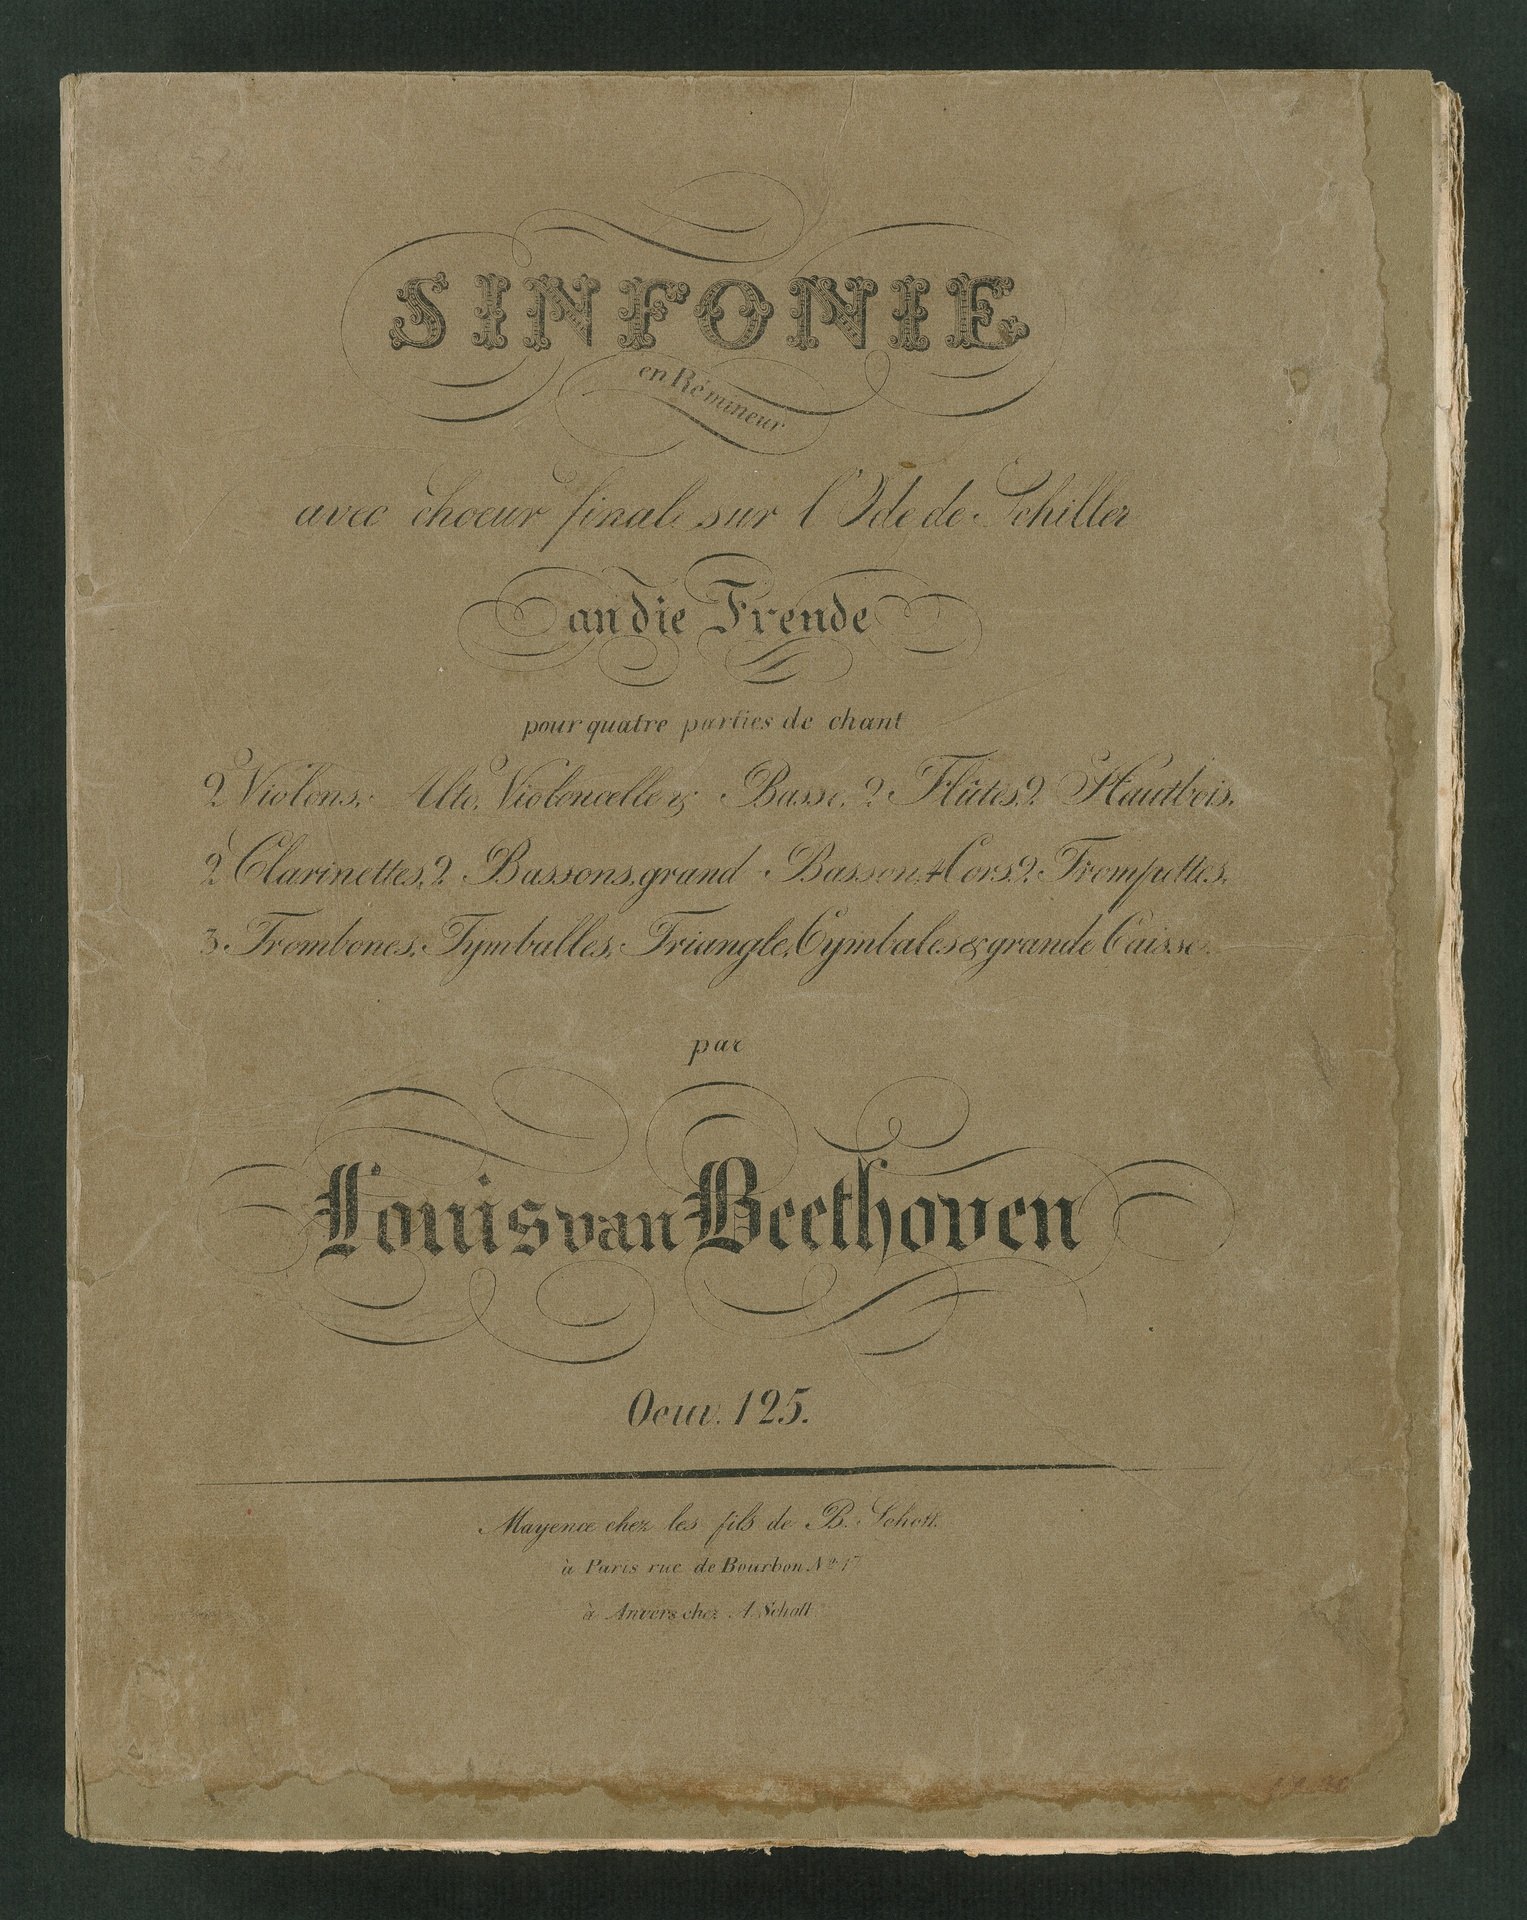 SINFONIE
en Ré mineur
avec choeur final sur l'Ode de Schiller
an die Frende
pour quatre parties de chant
2 Violons, Alto, Violoncelle & Basse, 2 Flûtes, 2 Hautbois,
2 Clarinettes, 2 Bassons, grand Basson, 4 Cors, 2 Trompettes,
3 Trombones, Tymballes, Triangle, Cymbales & grande Caisse
par
Louis van Beethoven
Oeuv. 125.
Mayence chez les fils de B. Schott.
à Paris rue de Bourbon No. 17
à Anvers chez A. Schott